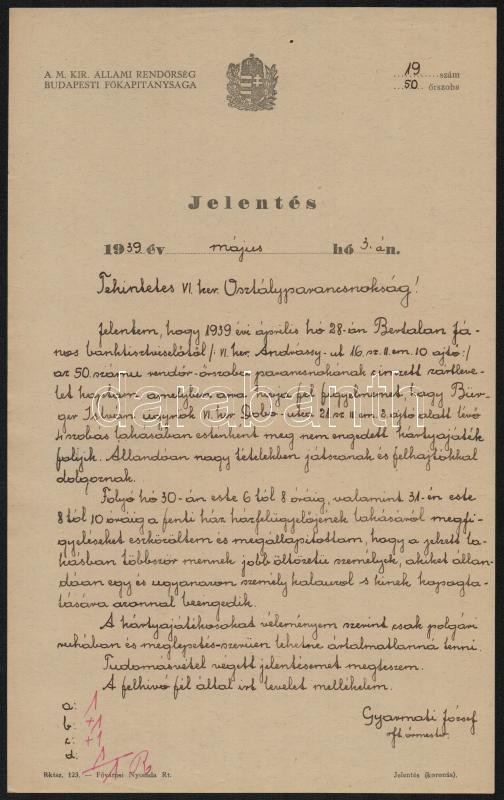 A M. KIR. ÁLLAMI RENDŐRSÉG
BUDAPESTI FŐKAPITÁNYSÁGA
19 szám
50 őrszoba
Jelentés
1939 év május hó 3.-án.
Tekintetes VI. ker. Osztályparancsnokság!
Jelentem, hogy 1939 évi április hó 28-án Bertalan Já-
nos banktisztviselőtől /:VI. ker. Andrássy-ut 16. sz. II. em. 10 ajtó:/
az 50. számu rendőr-őrszoba parancsnokának címzett zártleve-
let kaptam, amelyben arra hivja fel figyelmemet, hogy Bür-
ger István ügynök VI. ker. utca 21. sz. II. em. 3. ajtó alatt lévő
4 szobás lakásában esténként meg nem engedett kártyajáték
folyik. Állandóan nagy tételekben játszanak és felhajtókkal
dolgoznak.
Folyó hó 30-án este 6 tól 8 óráig, valamint 31-én este
8 tól 10 óráig a fenti ház házfelügyelőjének lakásáról megfi-
gyeléseket eszközöltem és megállapitottam, hogy a jelzett la-
kásban többször mennek jobb öltözetü személyek, akiket állan-
dóan egy és ugyanazon személy kalauzol s kinek kopogta-
tására azonnal beengedik.
A kártyajátékosokat véleményem szerint csak polgári
ruhában és meglepetés-szerüen lehetne ártalmatlanná tenni.
Tudomásvétel végett jelentésemet megteszem.
A felhivó fél által irt levelet mellékelem.
Gyarmati József
őrmester.
a: 1
b: +1
c: +1
d:
Rktsz. 123. — Fővárosi Nyomda Rt.
Jelentés (koronás).
darabanth